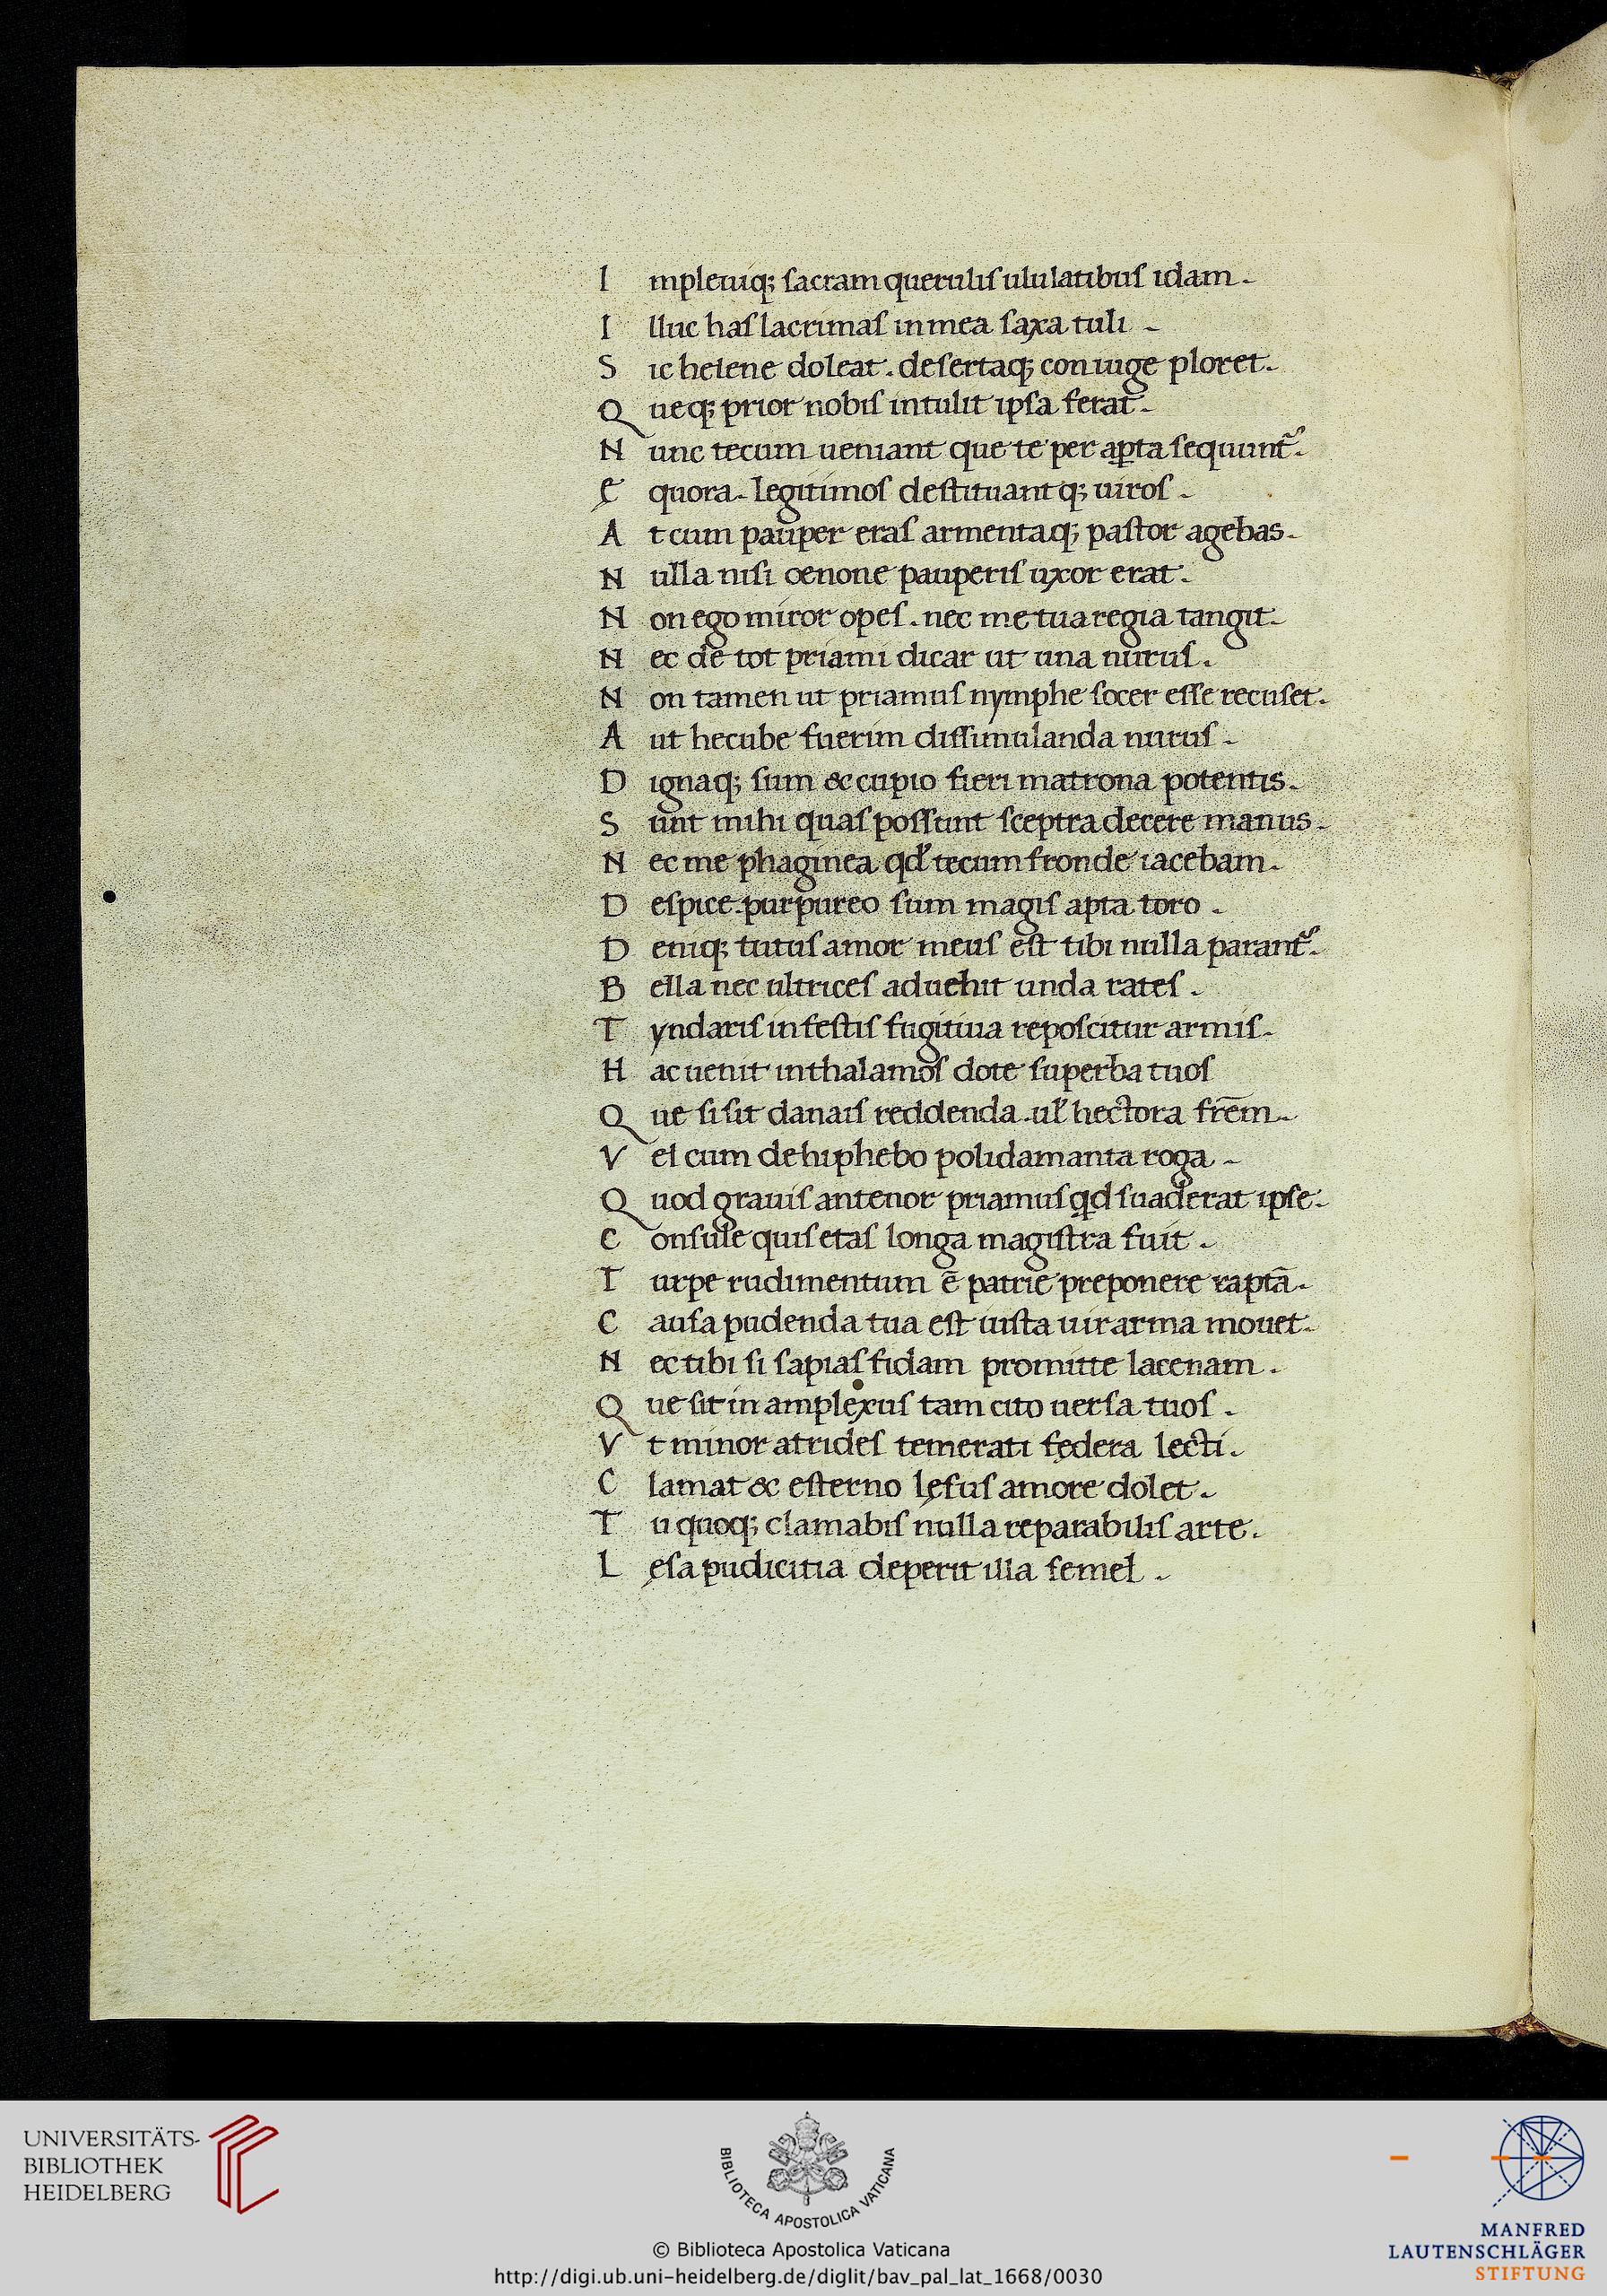 I mpleuiq; sacram querulis ululatibus idam.
I lluc has lacrimas in mea saxa tuli.
S ic helene doleat. desertaq; coniuge ploret.
Q ueq; prior nobis intulit ipsa ferat.
N unc tecum ueniant que te per apta sequunt᷑.
E quora. legitimos destituantq; uiros.
A t cum pauper eras armentaq; pastor agebas.
N ulla nisi oenone pauperis uxor erat.
N on ego miror opes. nec me tua regia tangit.
N ec de tot priami dicar ut una nurus.
N on tamen ut priamus nymphe socer esse recuset.
A ut hecube fuerim dissimulanda nurus.
D ignaq; sum & cupio fieri matrona potentis.
S unt mihi quas possunt sceptra decere manus.
N ec me phaginea qd̓ tecum fronde iacebam.
D espice. purpureo sum magis apta toro.
D eniq; tutus amor meus est tibi nulla parant᷑.
B ella nec ultrices aduehit unda rates.
T yndaris infestis fugitiua reposcitur armis.
H ac uenit in thalamos dote superba tuos
Q ue si sit danais reddenda. ul̓ hectora frēm.
V el cum dehiphebo polidamanta roga.
Q uod grauis antenor priamus qd suaderat ipse.
C onsule quis etas longa magistra fuit.
T urpe rudimentum ē patrie preponere raptā.
C ausa pudenda tua est iusta uir arma mouet.
N ec tibi si sapias fidam promitte lacenam.
Q ue sit in amplexus tam cito uersa tuos.
V t minor atrides temerati fędera lecti.
C lamat & esterno lęsus amore dolet.
T u quoq; clamabis nulla reparabilis arte.
L ęsa pudicitia deperit illa semel.
UNIVERSITÄTS-
BIBLIOTHEK
HEIDELBERG
BIBLIOTECA APOSTOLICA VATICANA
© Biblioteca Apostolica Vaticana
http://digi.ub.uni-heidelberg.de/diglit/bav_pal_lat_1668/0030
MANFRED
LAUTENSCHLÄGER
STIFTUNG